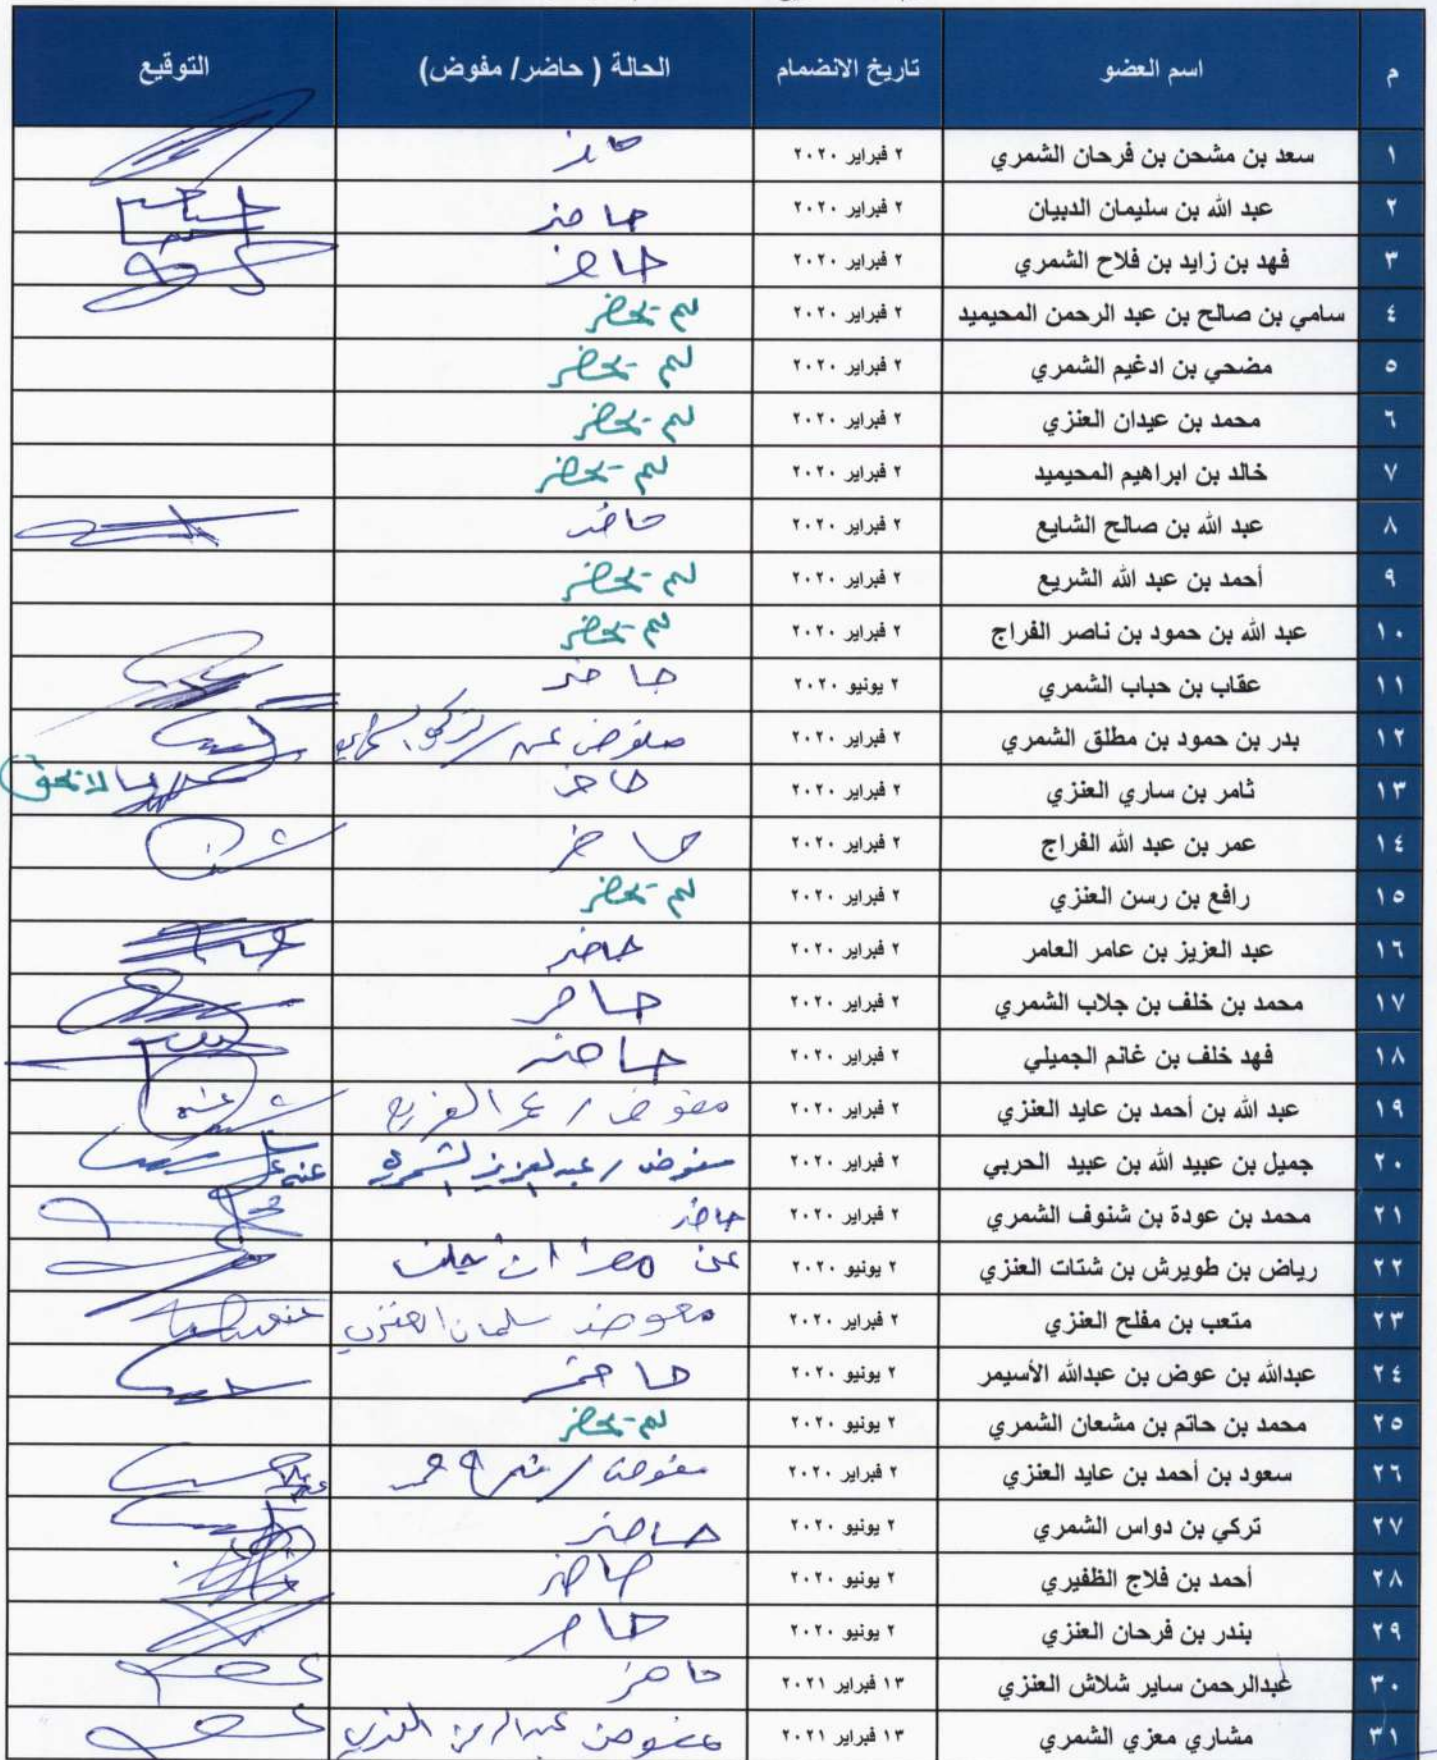 م اسم العضو تاريخ الانضمام الحالة ( حاضر/ مفوض) التوقيع
١ سعد بن مشحن بن فرحان الشمري ٢ فبراير ٢٠٢٠ حاضر
٢ عبد الله بن سليمان الدبيان ٢ فبراير ٢٠٢٠ حاضر
٣ فهد بن زايد بن فلاح الشمري ٢ فبراير ٢٠٢٠ حاضر
٤ سامي بن صالح بن عبد الرحمن المحيميد ٢ فبراير ٢٠٢٠ لم يحضر
٥ مضحي بن ادغيم الشمري ٢ فبراير ٢٠٢٠ لم يحضر
٦ محمد بن عيدان العنزي ٢ فبراير ٢٠٢٠ لم يحضر
٧ خالد بن ابراهيم المحيميد ٢ فبراير ٢٠٢٠ لم يحضر
٨ عبد الله بن صالح الشايع ٢ فبراير ٢٠٢٠ حاضر
٩ أحمد بن عبد الله الشريع ٢ فبراير ٢٠٢٠ لم يحضر
١٠ عبد الله بن حمود بن ناصر الفراج ٢ فبراير ٢٠٢٠ لم يحضر
١١ عقاب بن حباب الشمري ٢ يونيو ٢٠٢٠ حاضر
١٢ بدر بن حمود بن مطلق الشمري ٢ فبراير ٢٠٢٠ مفوض عن / تركي الشمري
١٣ ثامر بن ساري العنزي ٢ فبراير ٢٠٢٠ حاضر
١٤ عمر بن عبد الله الفراج ٢ فبراير ٢٠٢٠ حاضر
١٥ رافع بن رسن العنزي ٢ فبراير ٢٠٢٠ لم يحضر
١٦ عبد العزيز بن عامر العامر ٢ فبراير ٢٠٢٠ حاضر
١٧ محمد بن خلف بن جلاب الشمري ٢ فبراير ٢٠٢٠ حاضر
١٨ فهد خلف بن غانم الجميلي ٢ فبراير ٢٠٢٠ حاضر
١٩ عبد الله بن أحمد بن عايد العنزي ٢ فبراير ٢٠٢٠ مفوض / عمر عنه
٢٠ جميل بن عبيد الله بن عبيد الحربي ٢ فبراير ٢٠٢٠ مفوض / عبدالعزيز الشمري عنه
٢١ محمد بن عودة بن شنوف الشمري ٢ فبراير ٢٠٢٠ حاضر
٢٢ رياض بن طويرش بن شتات العنزي ٢ يونيو ٢٠٢٠ عن
٢٣ متعب بن مفلح العنزي ٢ فبراير ٢٠٢٠ مفوض سلمان العنزي عنه
٢٤ عبدالله بن عوض بن عبدالله الأسيمر ٢ يونيو ٢٠٢٠ حاضر
٢٥ محمد بن حاتم بن مشعان الشمري ٢ يونيو ٢٠٢٠ لم يحضر
٢٦ سعود بن أحمد بن عايد العنزي ٢ فبراير ٢٠٢٠ مفوض /
٢٧ تركي بن دواس الشمري ٢ يونيو ٢٠٢٠ حاضر
٢٨ أحمد بن فلاج الظفيري ٢ يونيو ٢٠٢٠ حاضر
٢٩ بندر بن فرحان العنزي ٢ يونيو ٢٠٢٠ حاضر
٣٠ عبدالرحمن ساير شلاش العنزي ١٣ فبراير ٢٠٢١ حاضر
٣١ مشاري معزي الشمري ١٣ فبراير ٢٠٢١ مفوض عبدالرحمن العنزي